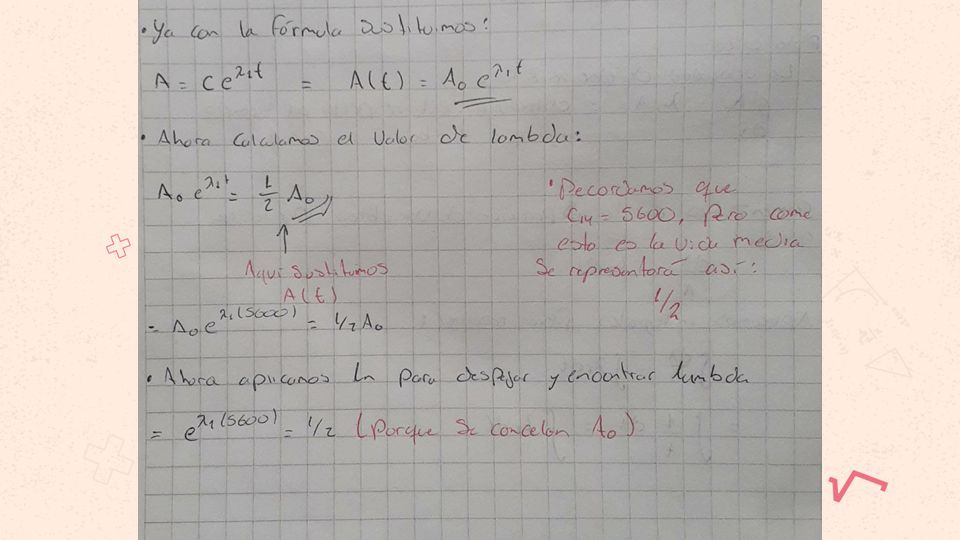 • Ya con la fórmula sustituimos:
A = Ce^λ₁t = A(t) = A₀ e^λ₁t
• Ahora calculamos el valor de lambda:
A₀ e^λ₁t = 1/2 A₀
• Recordamos que
C14 = 5600, pero como
esto es la vida media
se representará así:
1/2
Aquí sustitumos
A(t)
= A₀e^λ₁(5600) = 1/2 A₀
• Ahora aplicanos Ln para despejar y encontrar lambda
= e^λ₁(5600) = 1/2 (porque se cancelan A₀)